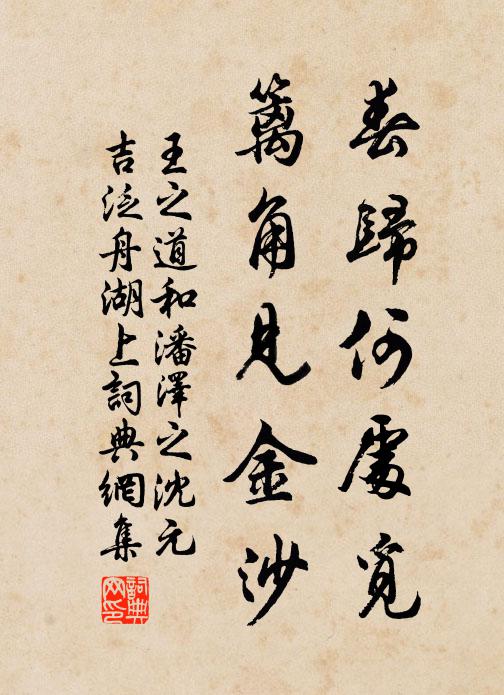 春歸何處覓
籬角見金沙
王之道和潘澤之沈元
吉泛舟湖上詞典網集
詞典
网印